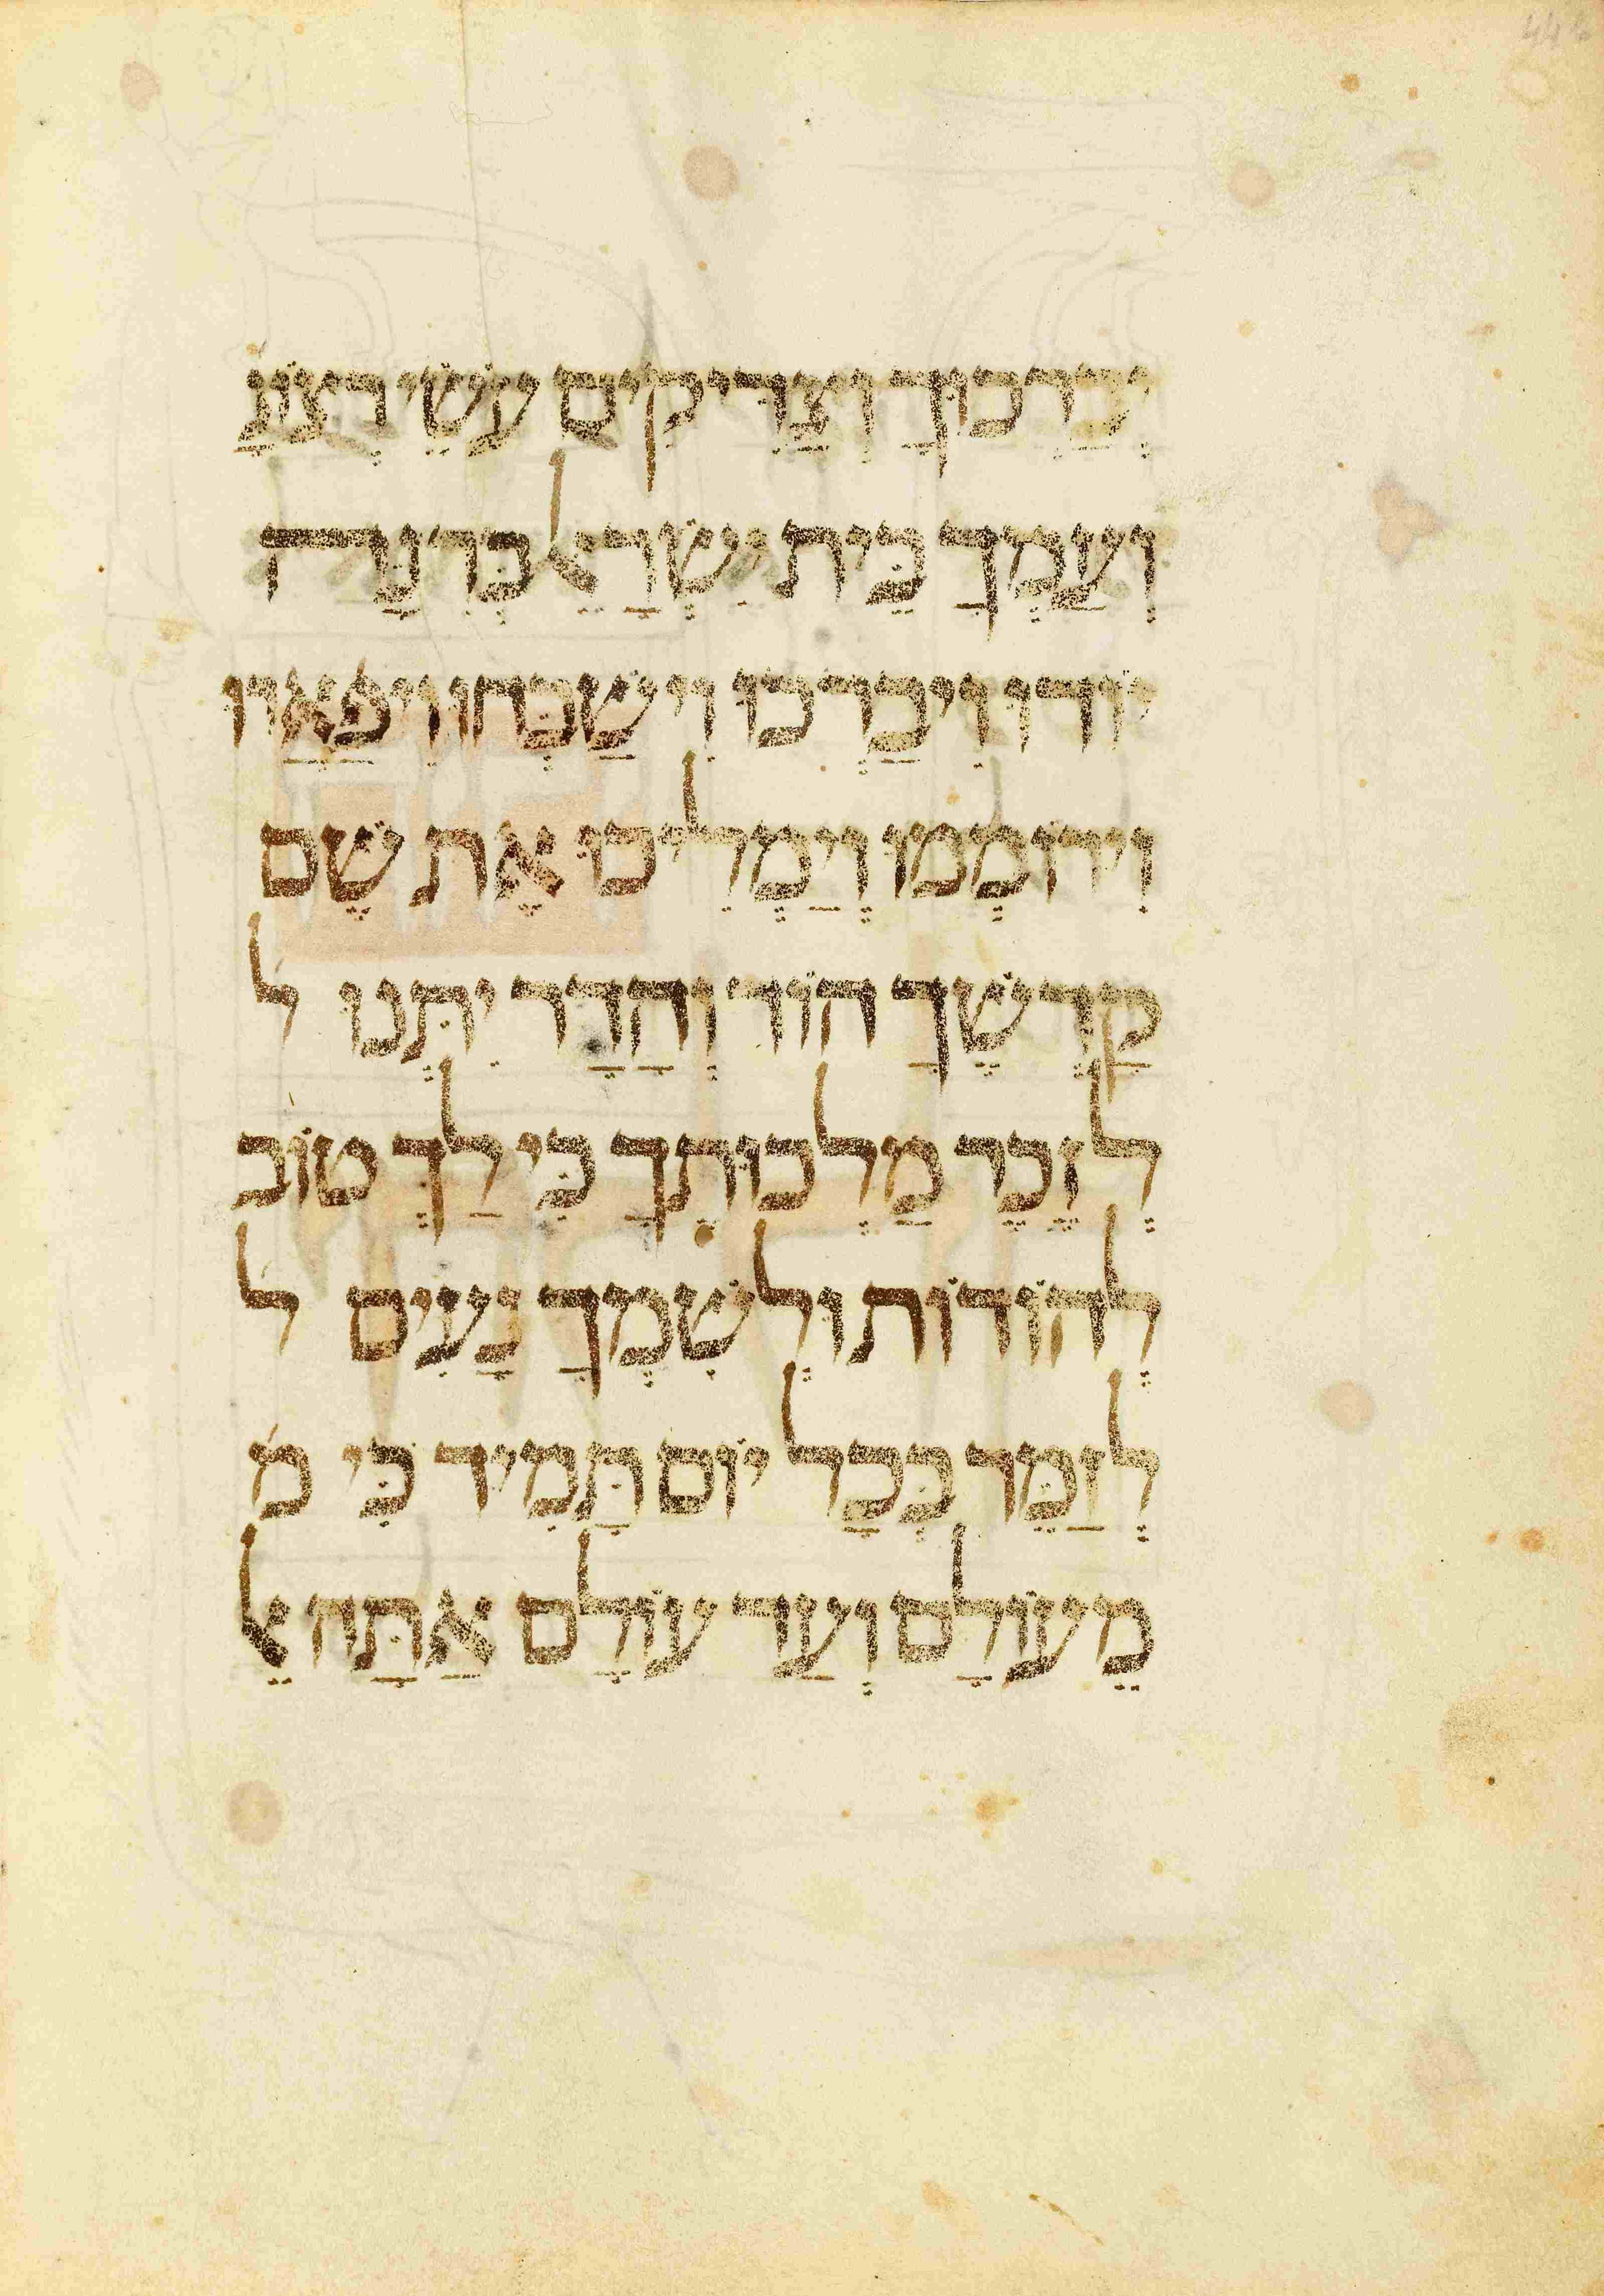 יְבָרְכוּךָ וְצַדִיקִים עֹשֵׂי רְצוֹנָ
וְעַמְךָ בֵּית יִשְׂרָאֵל בְּרִנָּה
יוֹדוּ וִיבַרְכוּ וִישַׁבְּחוּ וִיפַאֲרוּ
וִירוֹמְמוּ וְיַמְלִיכוּ אֶת שֵׁם
קָדְשֶׁךָ הוֹד וְהָדָר יִתְּנוּ ל
לְזֵכֶר מַלְכוּתֶךָ כִּי לְךָ טוֹב
לְהוֹדוֹת וּלְשִׁמְךָ נָעִים ל
לְזַמֵּר בְּכָל יוֹם תָּמִיד כִּי מ
מֵעוֹלָם וְעַד עוֹלָם אַתָּה אֵל